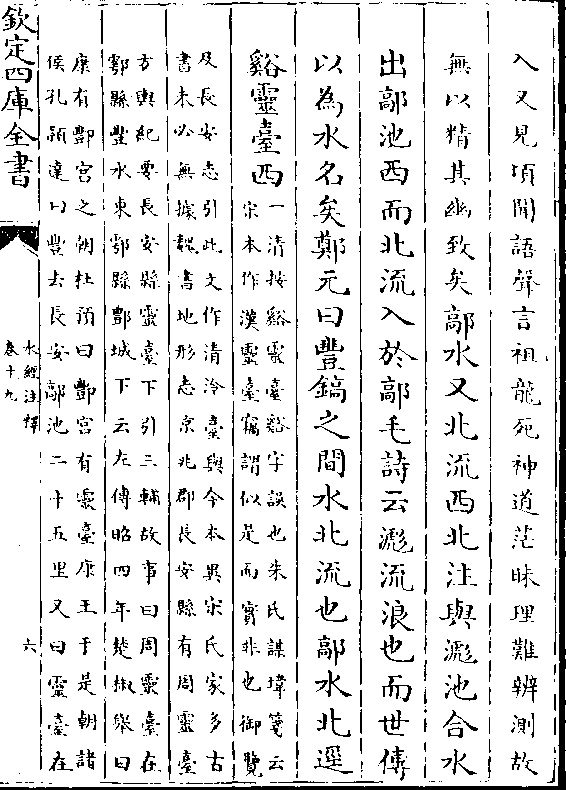 入又見項聞語聲言祖龍死神道茫昧理難辨測故
無以精其幽致矣鄗水又北流西北注與滮池合水
出鄗池西而北流入於鄗毛詩云滮流浪也而世傳
以為水名矣鄭元曰豐鎬之間水北流也鄗水北逕
谿靈臺西
一清按谿靈臺谿字誤也朱氏謀㙔箋云
宋本作漢靈臺竊謂似是而實非也御覽
及長安志引此文作清泠臺與今本異宋氏家多古
書未必無據魏書地形志京兆郡長安縣有周靈臺
方輿紀要長安縣靈臺下引三輔故事曰周靈臺在
鄠縣豐水東鄠縣酆城下云左傳昭四年楚椒舉曰
康有酆宮之朝杜預曰酆宮有靈臺康王于是朝諸
侯孔穎達曰豐去長安鄗池二十五里又曰靈臺在
欽定四庫全書
水經注釋
卷十九
六